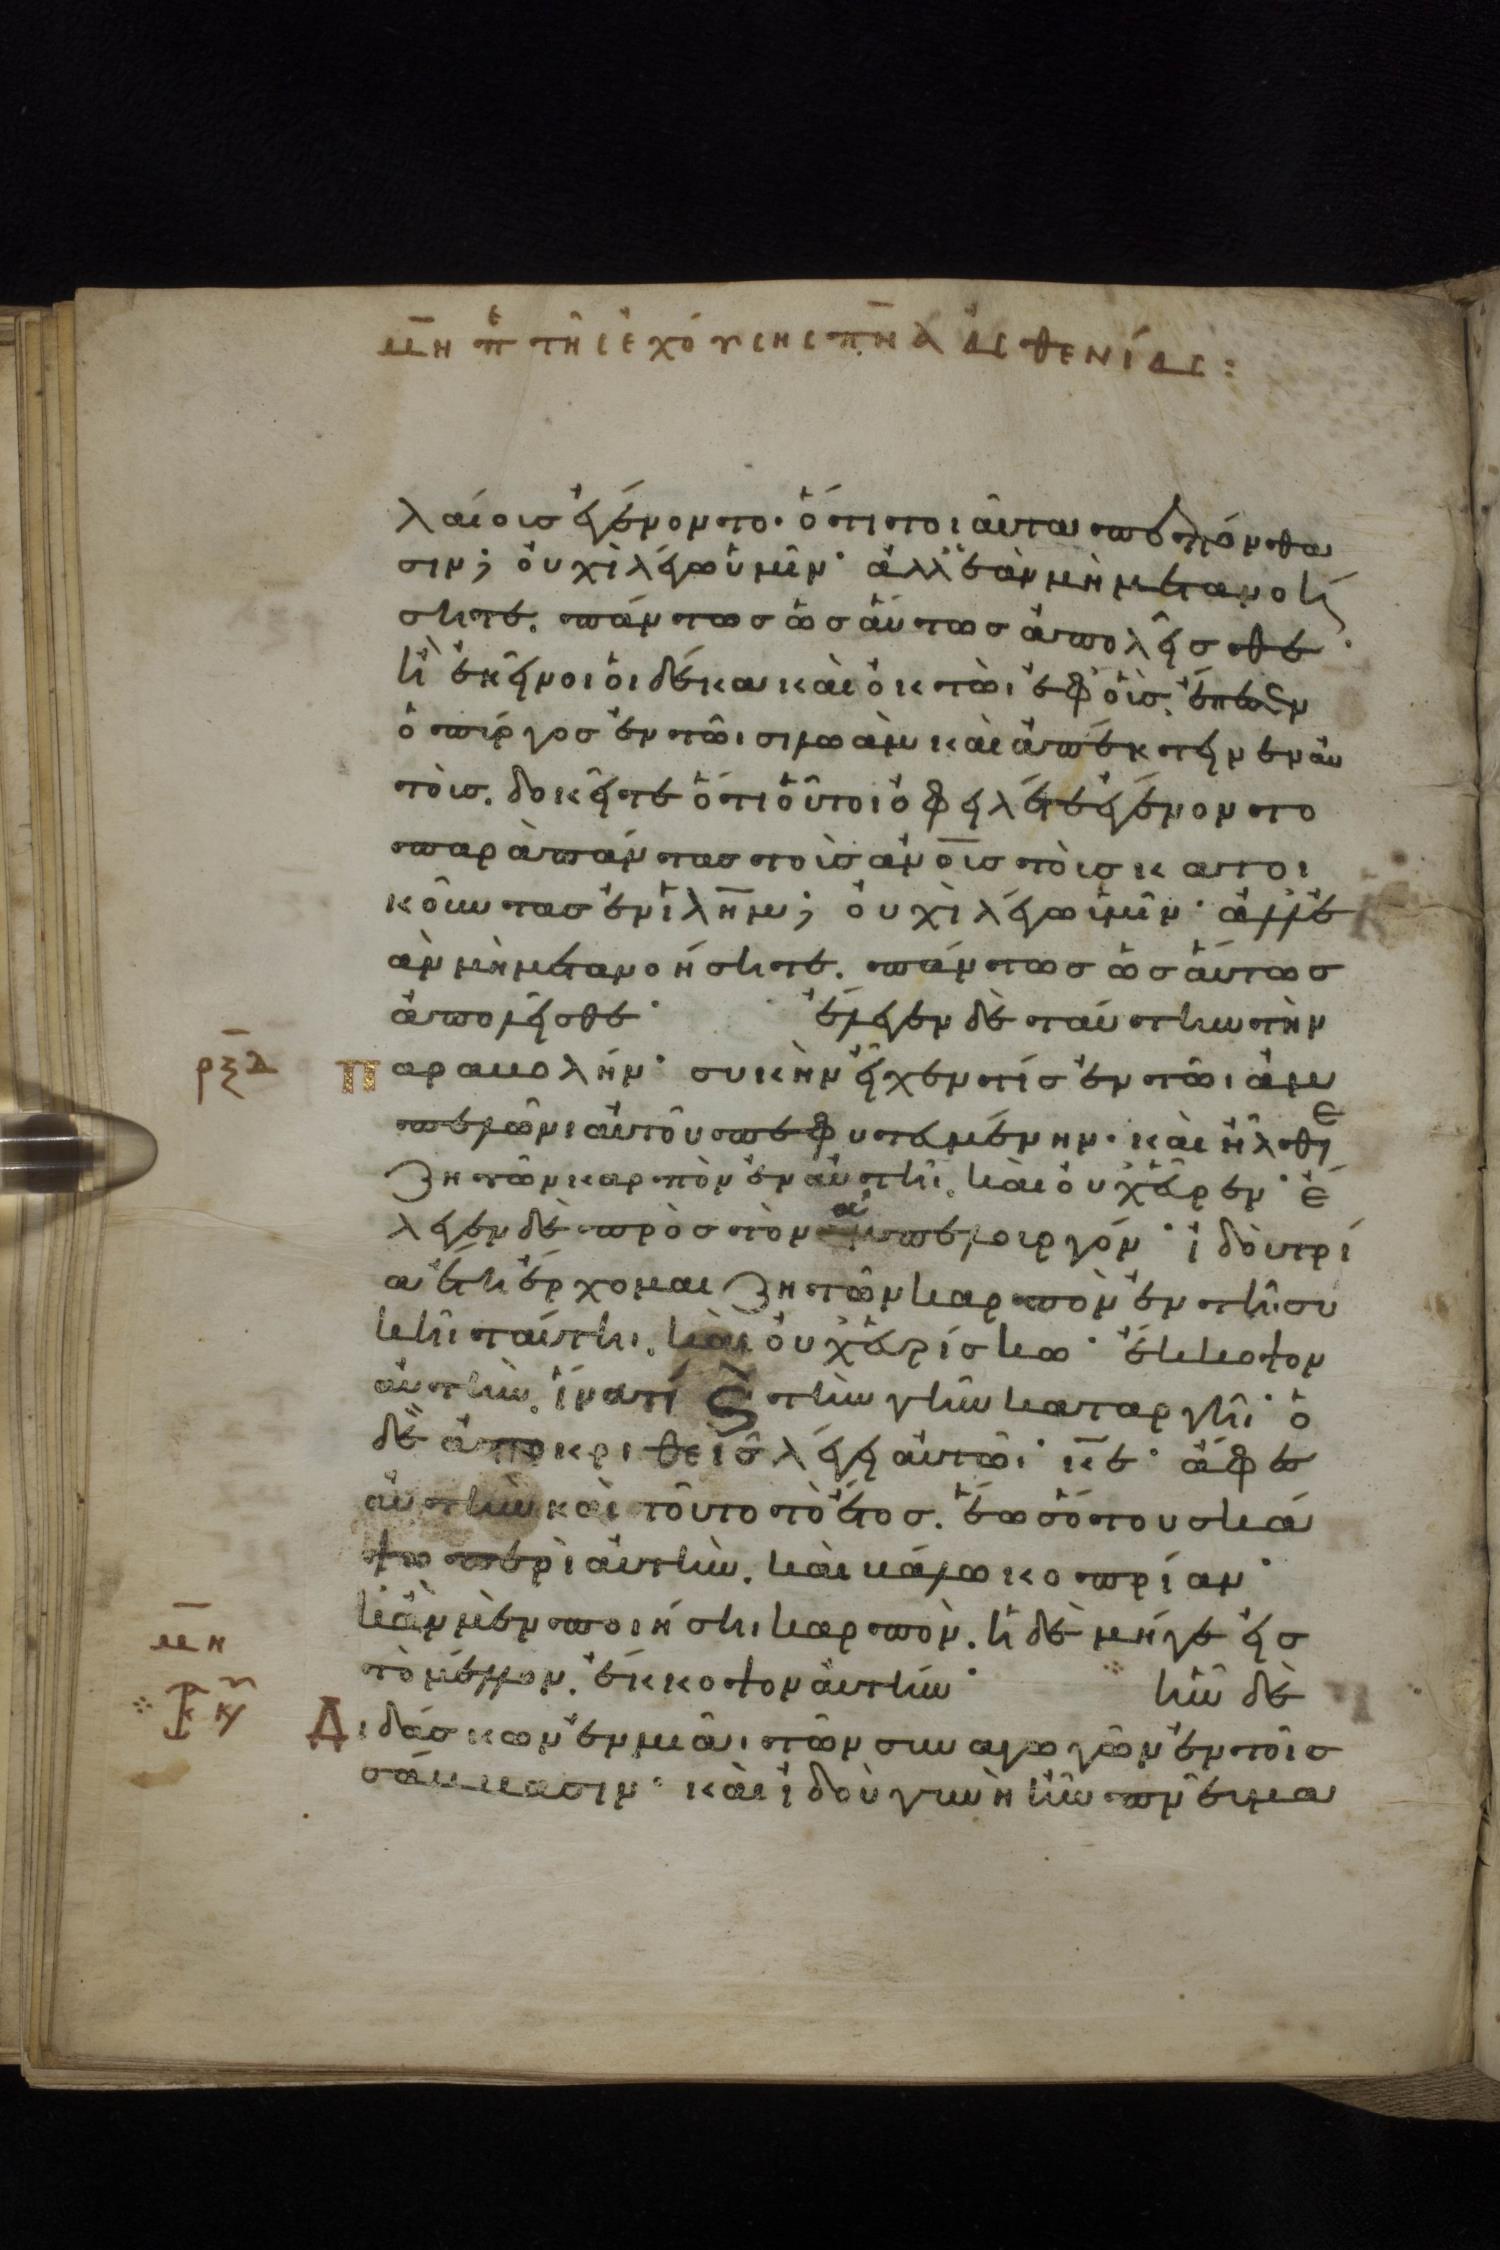 μ̅η̅ πε τῆς ἐχούσης πν̅α ἀσθενείας:
λαίοις ἐγένοντο· ὅτι τοιαῦτα πεπόνθα
σιν; οὐχὶ λέγω ὑμῖν· ἀλλ' ἐὰν μὴ μετανοή
σητε. πάντως ὡσαύτως ἀπολεῖσθε·
ἢ ἐκεῖνοι οἱ δέκα καὶ ὀκτὼι ἐφ' οὓς. ἔπεσεν
ὁ πύργος ἐν τῶι σιλωὰμ καὶ ἀπέκτεινεν αὐ
τοὺς. δοκεῖτε ὅτι οὗτοι ὀφειλέται ἐγένοντο
παρὰ πάντας τοὺς ἀν̅ο̅υς τοὺς κατοι
κοῦντας ἐν ἰλη̅μ; οὐχὶ λέγω ὑμῖν· ἀλλ' ἐ
ὰν μὴ μετανοήσητε. πάντως ὡσαύτως
ἀπολεῖσθε· ἔλεγεν δὲ ταύτην τὴν
ρξδ παραβολήν· συκὴν εἶχεν τίς ἐν τῶι ἀμ
πελῶνι αὐτοῦ πεφυτευμένην· καὶ ἦλθε
ζητῶν καρπὸν ἐν αὐτῆι. καὶ οὐχ εὗρεν· ἔ
λεγεν δὲ πρὸς τὸν ἀμπελουργόν· ἰδοὺ τρί
α ἔτη ἔρχομαι ζητῶν καρπὸν ἐν τῆι συ
κῆι ταύτηι. καὶ οὐχ εὑρίσκω· ἔκκοψον
αὐτὴν. ἵνα τί ϗ τὴν γῆν καταργῆι· ὁ
δὲ ἀποκριθεὶς λέγει αὐτῶι· κ̅ε· ἄφες
αὐτὴν καὶ τοῦτο τὸ ἔτος. ἕως ὅτου σκά
ψω περὶ αὐτὴν. καὶ βάλω κοπρίαν·
μ̅η κἂν μὲν ποιήσηι καρπὸν. εἰ δὲ μήγε εἰς
τὸ μέλλον. ἐκκόψον αὐτήν· ἦν δὲ
Διδάσκων ἐν μιᾶι τῶν συναγωγῶν ἐν τοῖς
σάββασιν· καὶ ἰδοὺ γυνὴ ἦν πνεῦμα